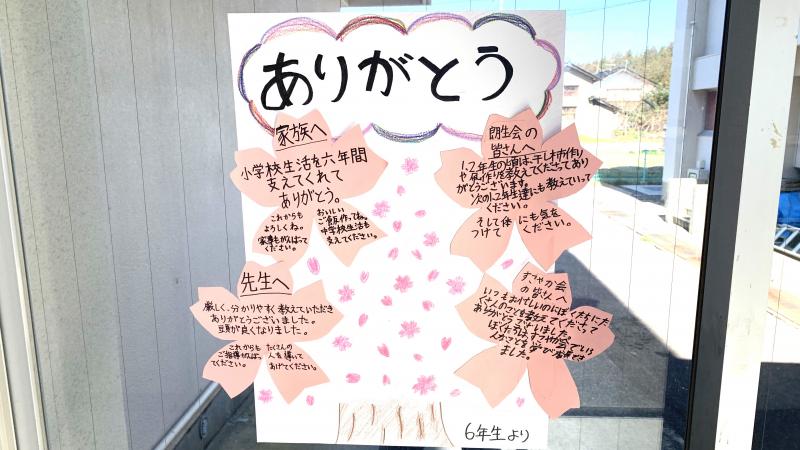 ありがとう
家族へ
小学校生活を六年間
支えてくれて
ありがとう。
これからも
よろしくね。
家事もがんばって
ください。
おいしい
ご飯作ってね。
中学校生活も
支えてください。
朗生会の
皆さんへ
1、2年生の頃は、干し柿作り
や凧作りを教えてくださってあり
がとうございます。
次の1、2年生達にも教えていって
ください。
そして体にも気を
つけてください。
先生へ
厳しく、分かりやすく教えていただき
ありがとうございました。
豆頁が良くなりました。
これからも
ご指導がんばっ
てください。
たくさんの
人を導いて
あげてください。
すこやか会
の皆さんへ
いつもお忙しいのにぼくたちにた
くさんのことを教えてくださって
ありがとうございました。
ぼくたちは、すこやか会でいろ
ました。
6年生より